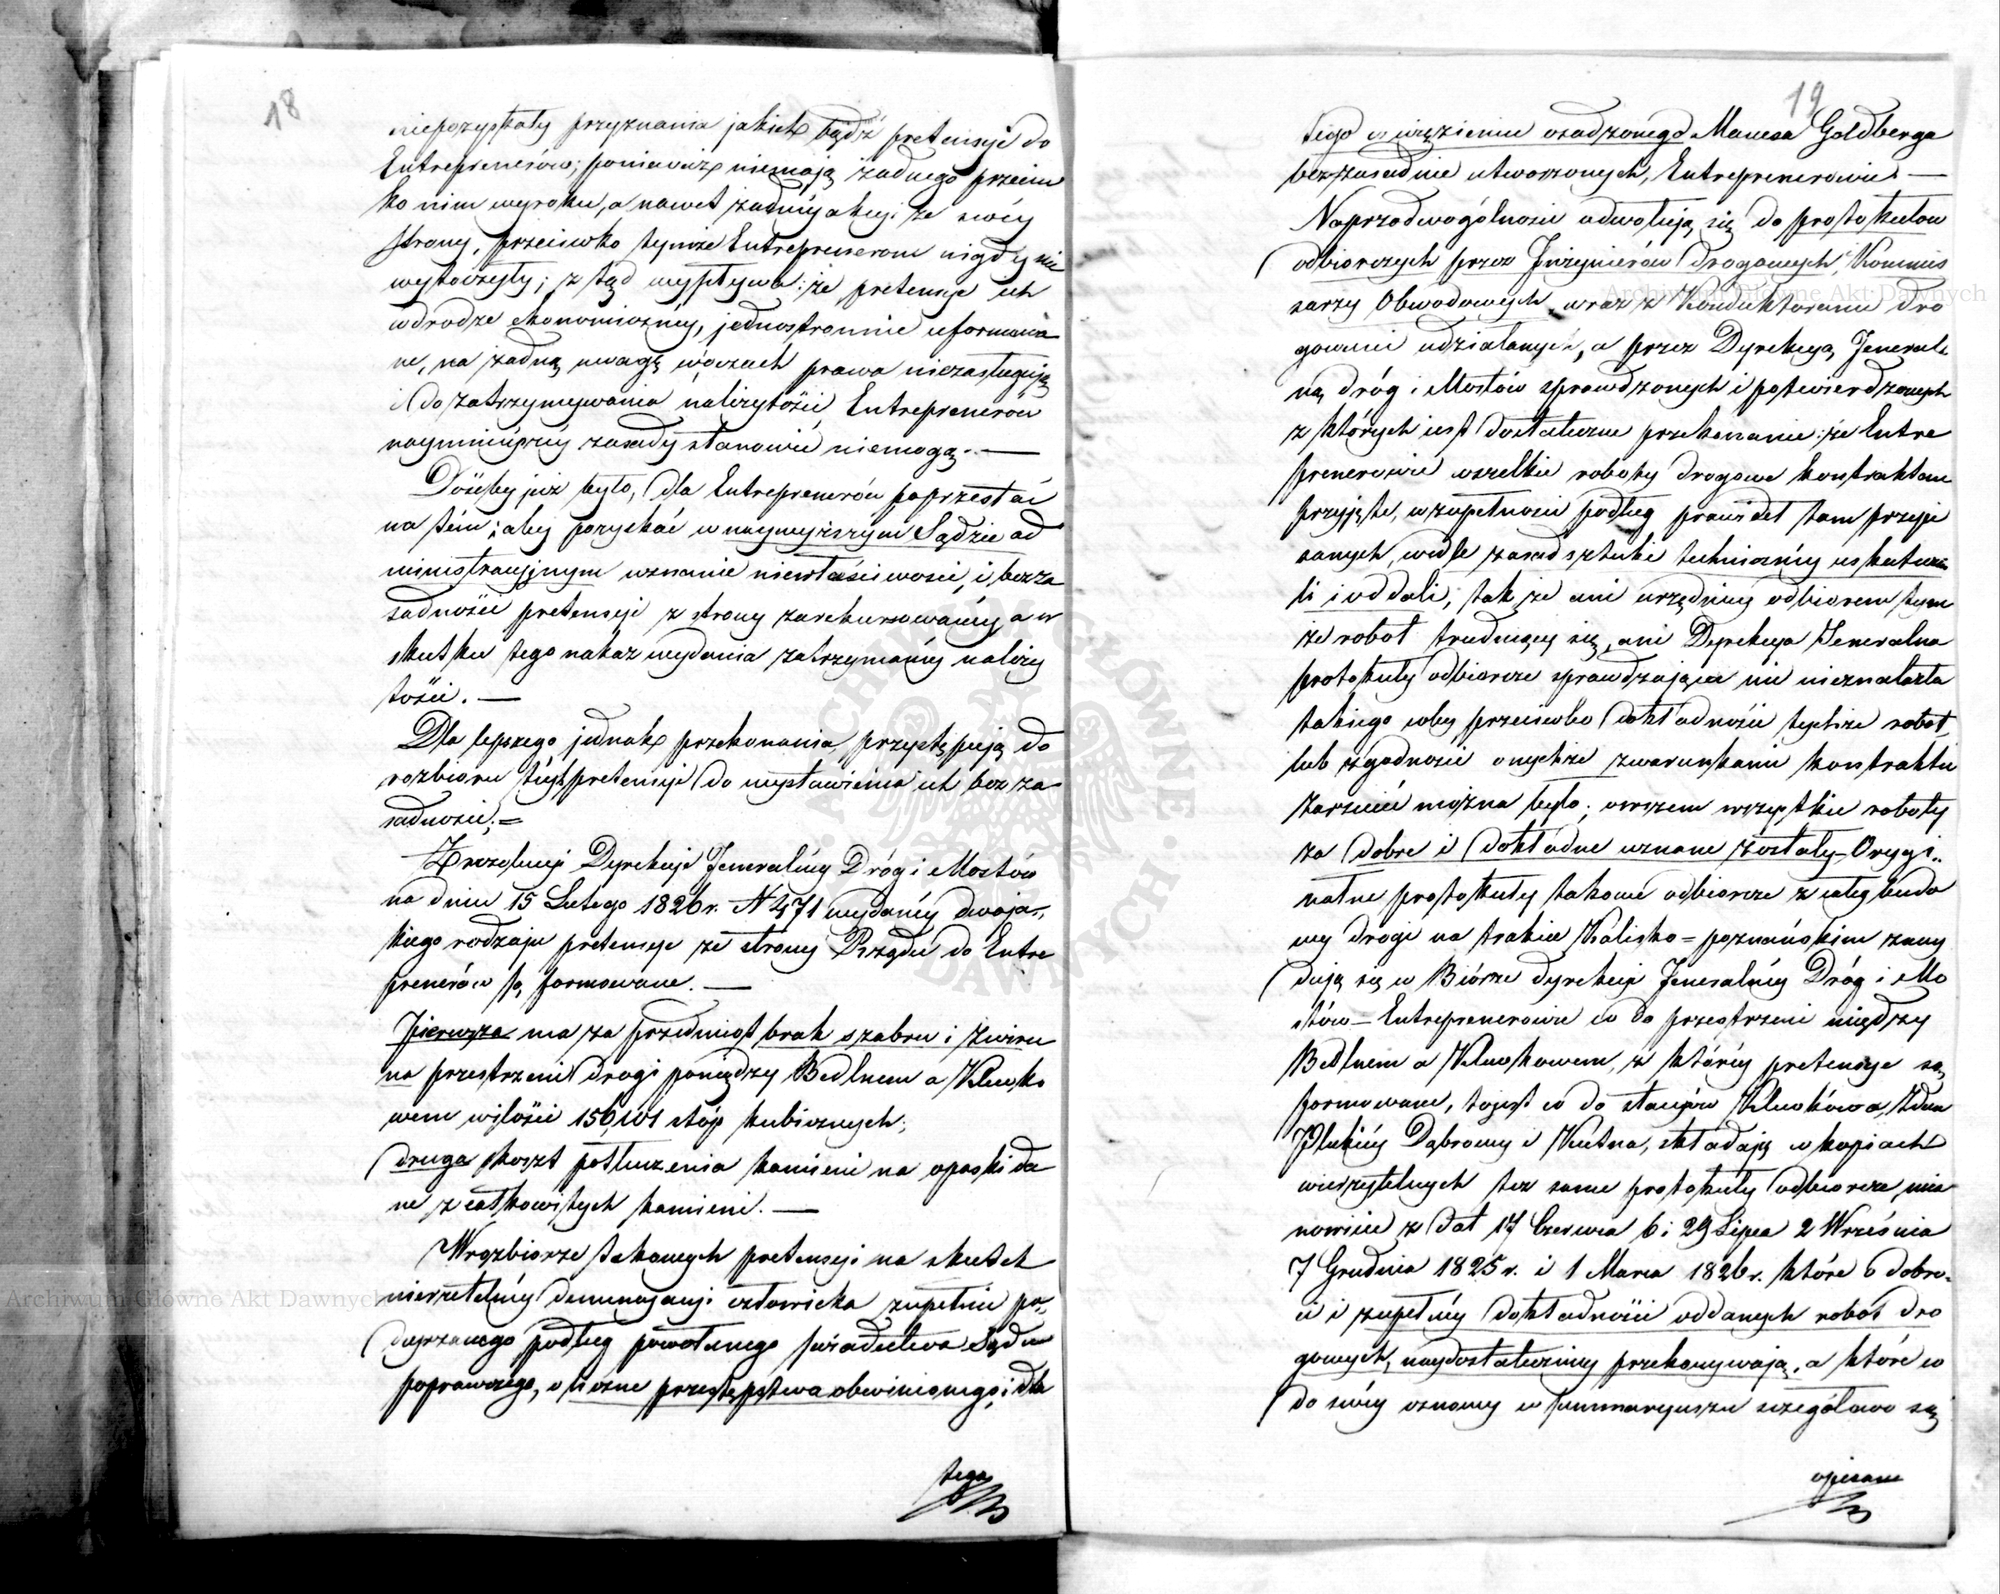 18
niepozyskały przyznania jakich bądź pretensyi do
Entreprenerów; ponieważ niemają żadnego przeciw
ko nim wyroku, a nawet żadnéy akcyi ze swéy
strony, przeciwko tymże Entreprenerom nigdy nie
wytoczyły; z tąd wypływa: że pretensye ich
w drodze ekonomicznéy, jednostronnie uformowa
ne, na żadną uwagę w oczach prawa niezasługują
i do zatrzymywania należytości Entreprenerów
naymnieyszéy zasady stanowić niemogą. —
Dośćby już było, dla Entreprenerów poprzestać
na tém; aby pozyskać w naywyższym Sądzie ad
ministracyjnym uznanie niewłaściwości, i bezza
sadności pretensyi z strony zarekursowanéy, a w
skutku tego nakaz wydania zatrzymanéy należy
tości. —
Dla lepszego jednak przekonania, przystępują do
rozbioru tychż pretensyi do wystawienia ich bezza
sadności; =
Z rezolucyi Dyrekcyi Jeneralnéy Dróg i Mostów
na dniu 15 Lutego 1826 r. N 471 wydanéy dwoja-
kiego rodzaju pretensye ze strony Rządu do Entre
prenerów są formowane. —
Pierwsza ma za przedmiot brak szabru i żwiru
na przestrzeni drogi pomiędzy Bedlnem a Klusko
wem w ilości 156,101 stóp kubicznych;
druga koszt potłuczenia kamieni na opaski da
ne z całkowitych kamieni. —
W rozbiorze takowych pretensyi na skutek
nierzetelnéy denuncyacyi człowieka zupełnie po-
dejrzanego podług powołanego świadectwa Sądu
poprawczego, o różne przestępstwa obwinionego, i dla
tego
19
tego w więzieniu osadzonego Manesa Goldberga
bezzasadnie utworzonych, Entreprenerowie —
Naprzód w ogólności odwołują się do protokułów
odbiorczych przez Inżynierów drogowych, Kommis
sarzy Obwodowych, wraz z Konduktorami dro
gowemi udziałanych, a przez Dyrekcyą Jeneral-
ną dróg i Mostów sprawdzonych i potwierdzonych
z których iest dostateczne przekonanie: że Entre
prenerowie wszelkie roboty drogowe kontraktem
przyjęte, w zupełności podług prawideł tam przepi
sanych, wedle zasad sztuki techniczney uskuteczni
li i oddali, tak że ani urzędnicy odbiorem tym
że robót trudniący się, ani Dyrekcya Jeneralna
protokuły odbiorcze sprawdzająca nic nieznalazła
takiego coby przeciwko dokładności tychże robót,
lub zgodności onychże z warunkami kontraktu
zarzucić można było; owszem wszystkie roboty
za dobre i dokładne uznane zostały — Orygi-
nalne protokuły takowe odbiorcze z całey budo
wy drogi na trakcie Kalisko = poznańskim znay
dują się w Biórze dyrekcyi Jeneralnéy Dróg i Mo
stów — Entreprenerowie co do przestrzeni między
Bedlnem a Kluskowem, z któréy pretensye są
formowane, tojest co do stacyów Kluskowa, Zduń
Plecкiéy Dąbrowy i Kutna, składają w kopiach
wierzytelnych też same protokuły odbiorcze mia
nowicie z dat 17 Czerwca 6 i 29 Lipca 2 Września
7 Grudnia 1825 r. i 1 Marca 1826 r. które o dobro-
ci i zupełnéy dokładności oddanych robót dro
gowych, naydostateczniéy przekonywają, a które co
do swéy osnowy w summaryuszu szczegółowo są
opisane